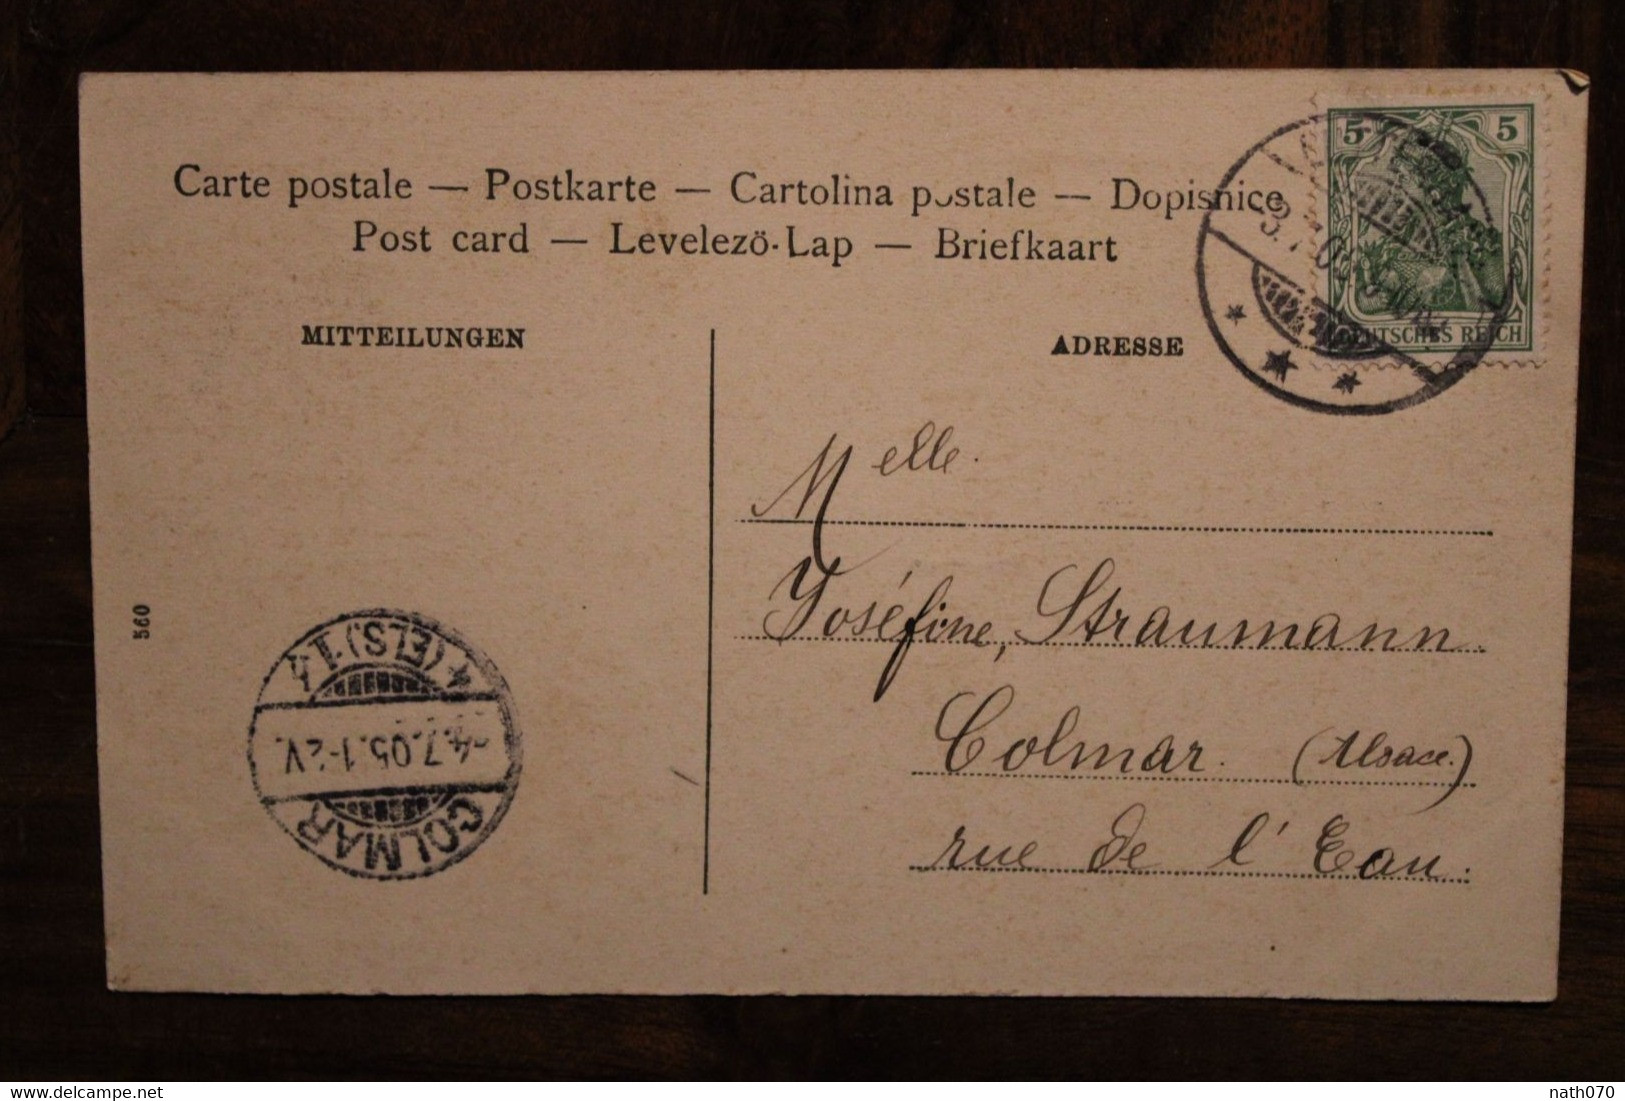 Carte postale — Postkarte — Cartolina postale — Dopisnice
Post card — Levelezö-Lap — Briefkaart
MITTEILUNGEN
ADRESSE
5 5
DEUTSCHES REICH
Melle.
Joséfine, Straumann.
Colmar. (Alsace.)
rue de l'Eau.
560
COLMAR
4.7.05.1-2V.
(ELS)
nath070